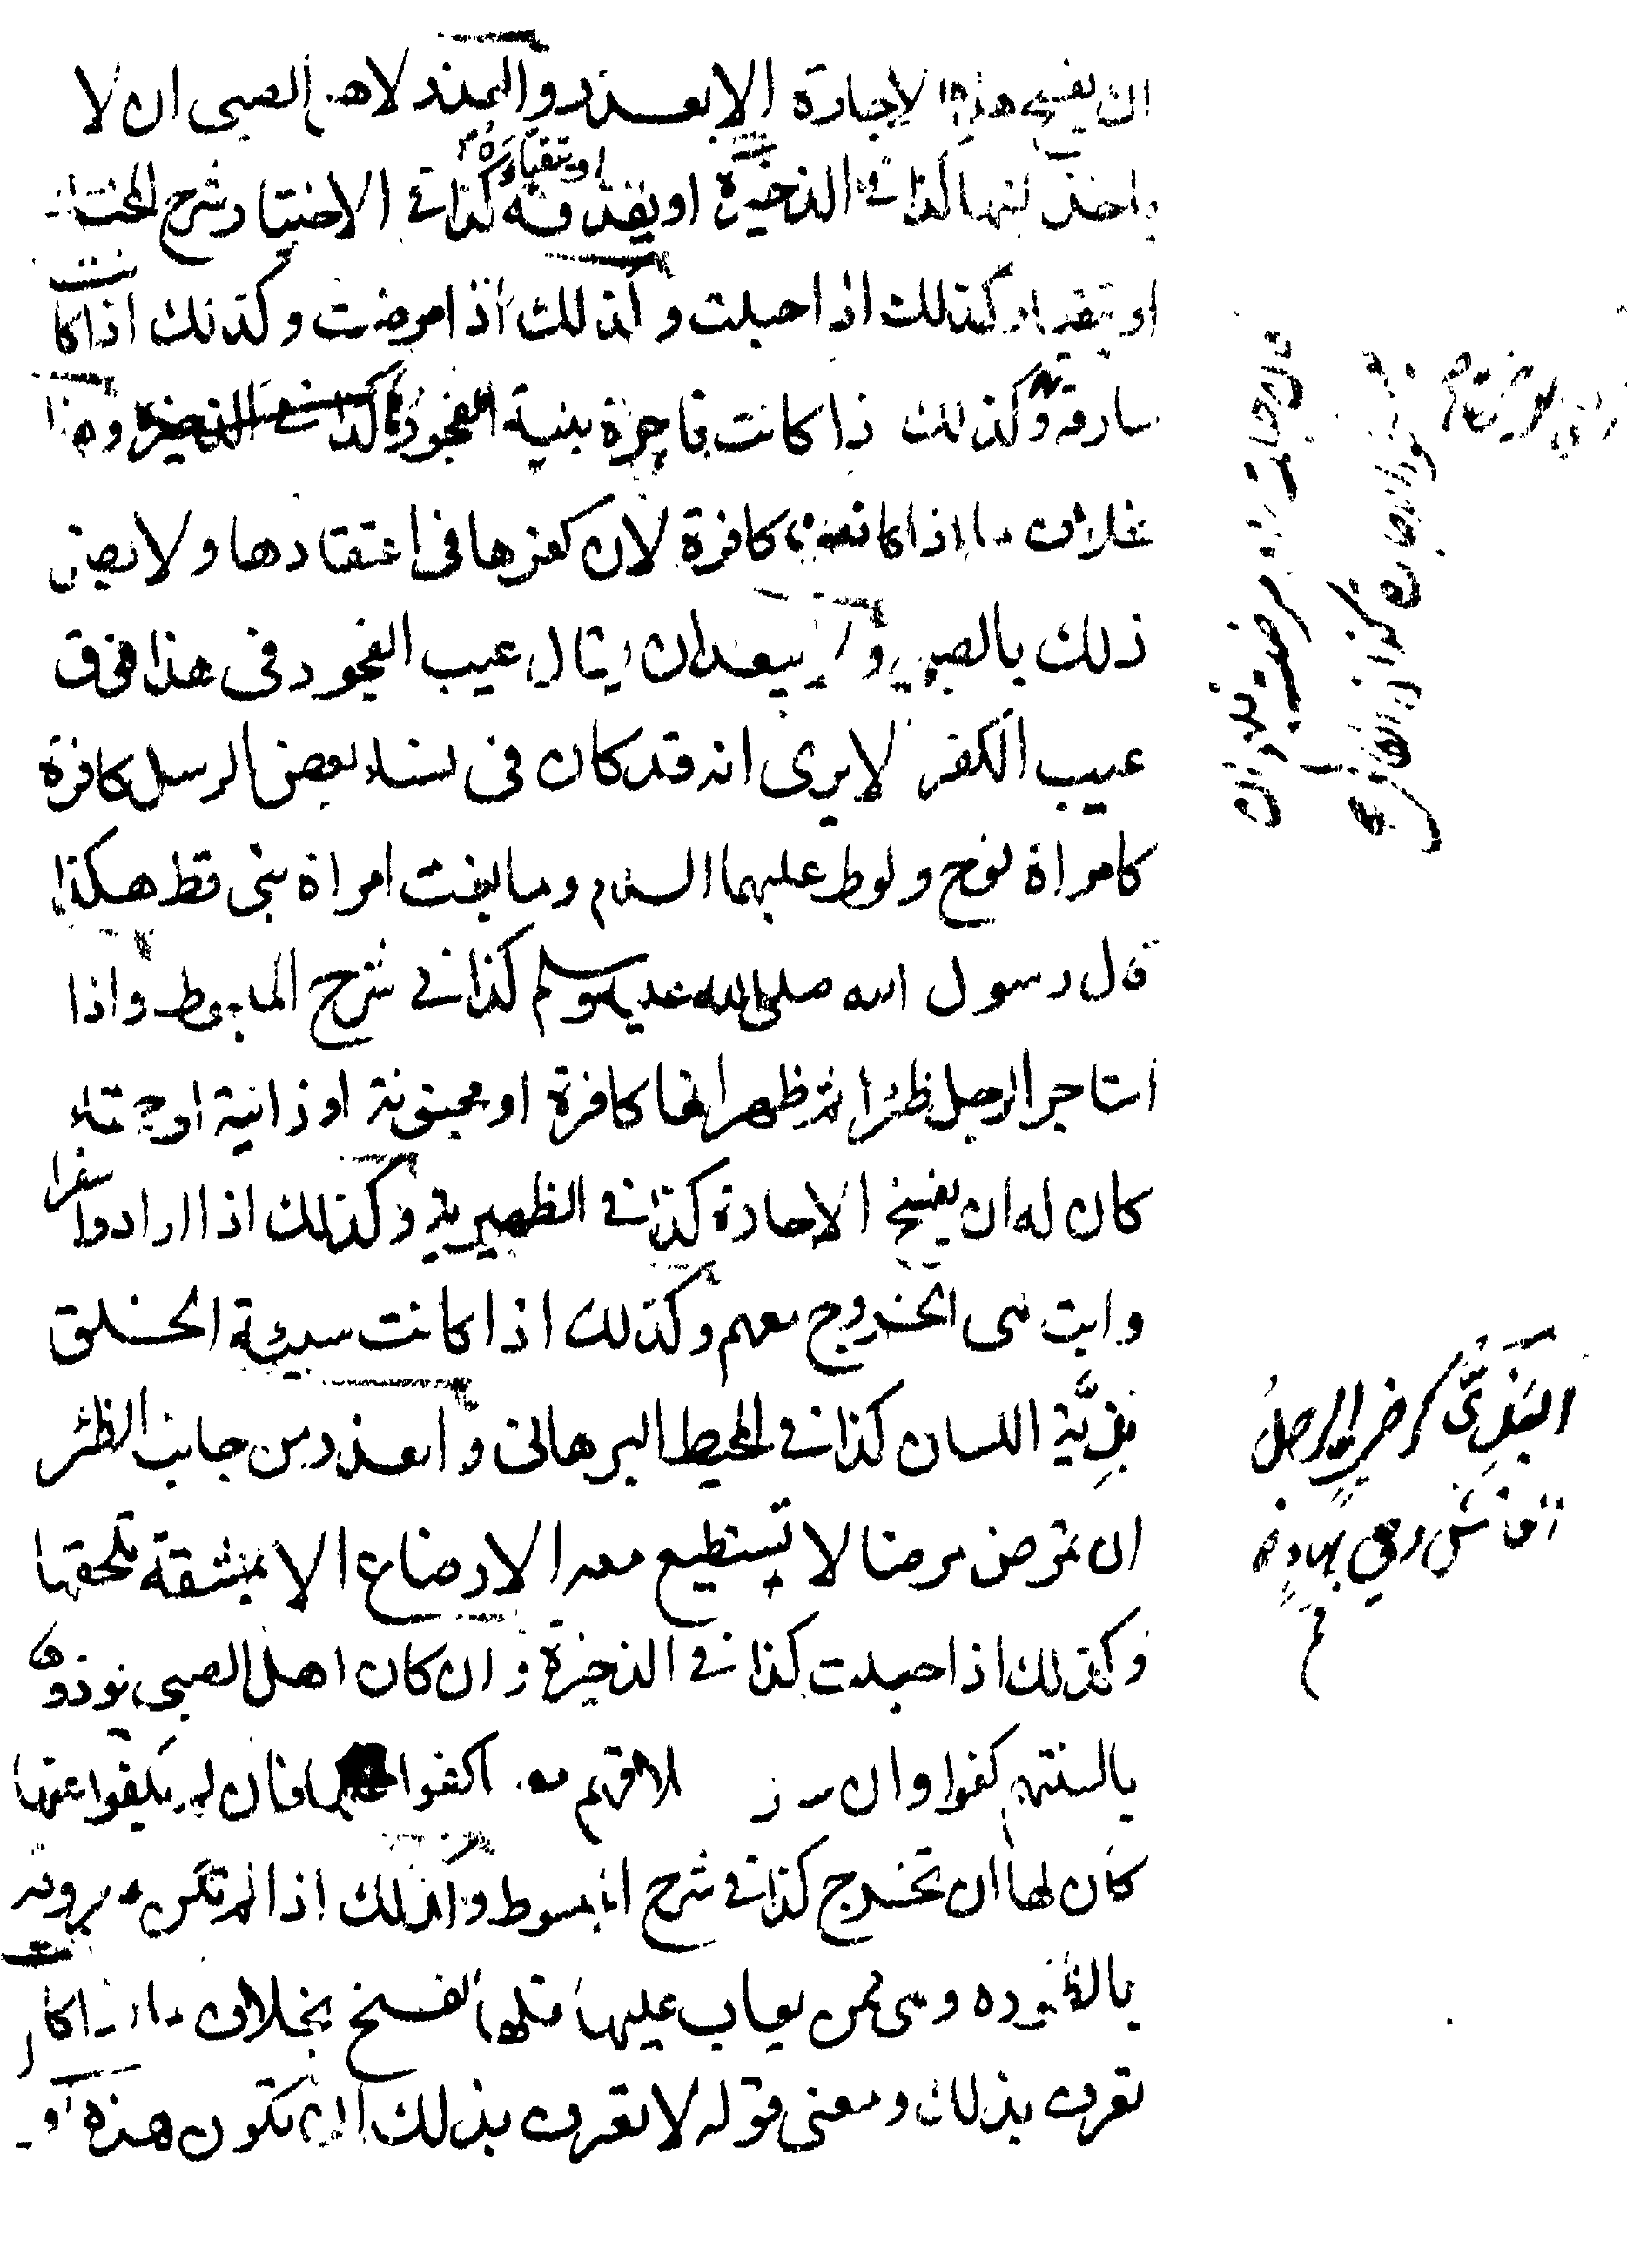 ان يفسخ هذه الاجارة الا بعذر والعذر لاهل الصبى ان لا
ياخذ لبنها كذا فى الذخيرة او يقذفه كذا فى الاختيار شرح المختار
او يتقيا وكذلك اذا حبلت وكذلك اذا مرضت وكذلك اذا كانت
سارقة وكذلك اذا كانت فاجرة بينة الفجور وهذا
بخلاف ما اذا كانت كافرة لان كفرها فى اعتقادها ولا يضر
ذلك بالصبى ولا يبعد ان يقال عيب الفجور فى هذا فوق
عيب الكفر الا يرى انه قد كان فى نساء بعض الرسل كافرة
كامراة نوح ولوط عليهما السلام وما بغت امراة نبى قط هكذا
قال رسول الله صلى الله عليه وسلم كذا فى شرح المبسوط واذا
استاجر الرجل ظئرا ثم ظهر انها كافرة او مجنونة او زانية او حمقاء
كان له ان يفسخ الاجارة كذا فى الظهيرية وكذلك اذا ارادوا سفرا
وابت هى الخروج معهم وكذلك اذا كانت سيئة الخلق
بَذِيَّة اللسان كذا فى المحيط البرهانى والعذر من جانب الظئر
ان تمرض مرضا لا تستطيع معه الارضاع الا بمشقة تلحقها
وكذلك اذا حبلت كذا فى الذخيرة وان كان اهل الصبى يوذونها
بالسنتهم كفوا وان اخلاقهم معها كفوا فان لم يكفوا عنها
كان لها ان تخرج كذا فى شرح المبسوط وكذلك اذا لم تكن معروفة
بالظئورة وهى ممن يعاب عليها فلها الفسخ بخلاف ما اذا كانت
تعرف بذلك ومعنى قوله لا تعرف بذلك ان تكون هذه او
البَذِىُّ الرجل
الفاحش وهى بهاء